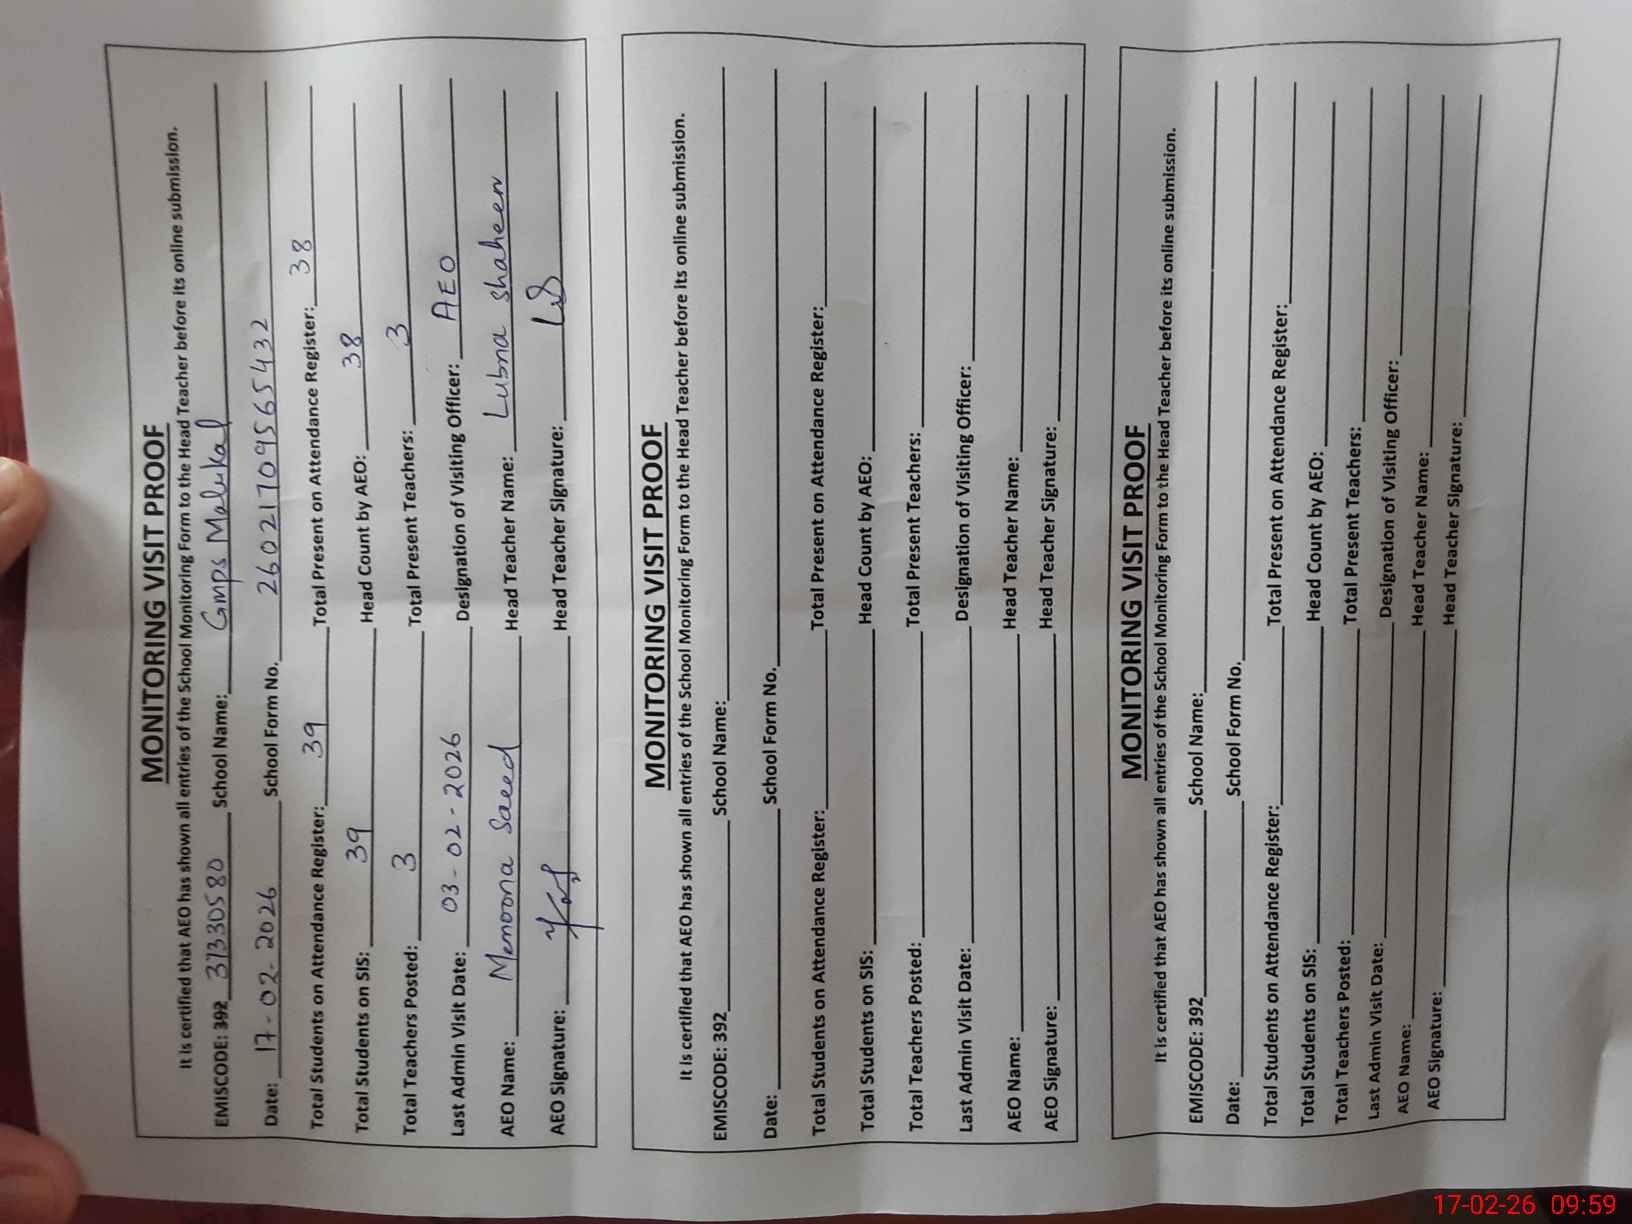 MONITORING VISIT PROOF
It is certified that AEO has shown all entries of the School Monitoring Form to the Head Teacher before its online submission.
EMISCODE: 392 37330580 School Name: Gmps Malukal
Date: 17-02-2026 School Form No. 26021709565432
Total Students on Attendance Register: 39 Total Present on Attendance Register: 38
Total Students on SIS: 39 Head Count by AEO: 38
Total Teachers Posted: 3 Total Present Teachers: 3
Last Admin Visit Date: 03-02-2026 Designation of Visiting Officer: AEO
AEO Name: Memoona Saeed Head Teacher Name: Lubna shaheen
AEO Signature: Head Teacher Signature: LS
MONITORING VISIT PROOF
It is certified that AEO has shown all entries of the School Monitoring Form to the Head Teacher before its online submission.
EMISCODE: 392 School Name:
Date: School Form No.
Total Students on Attendance Register: Total Present on Attendance Register:
Total Students on SIS: Head Count by AEO:
Total Teachers Posted: Total Present Teachers:
Last Admin Visit Date: Designation of Visiting Officer:
AEO Name: Head Teacher Name:
AEO Signature: Head Teacher Signature:
MONITORING VISIT PROOF
It is certified that AEO has shown all entries of the School Monitoring Form to the Head Teacher before its online submission.
EMISCODE: 392 School Name:
Date: School Form No.
Total Students on Attendance Register: Total Present on Attendance Register:
Total Students on SIS: Head Count by AEO:
Total Teachers Posted: Total Present Teachers:
Last Admin Visit Date: Designation of Visiting Officer:
AEO Name: Head Teacher Name:
AEO Signature: Head Teacher Signature:
17-02-26 09:59